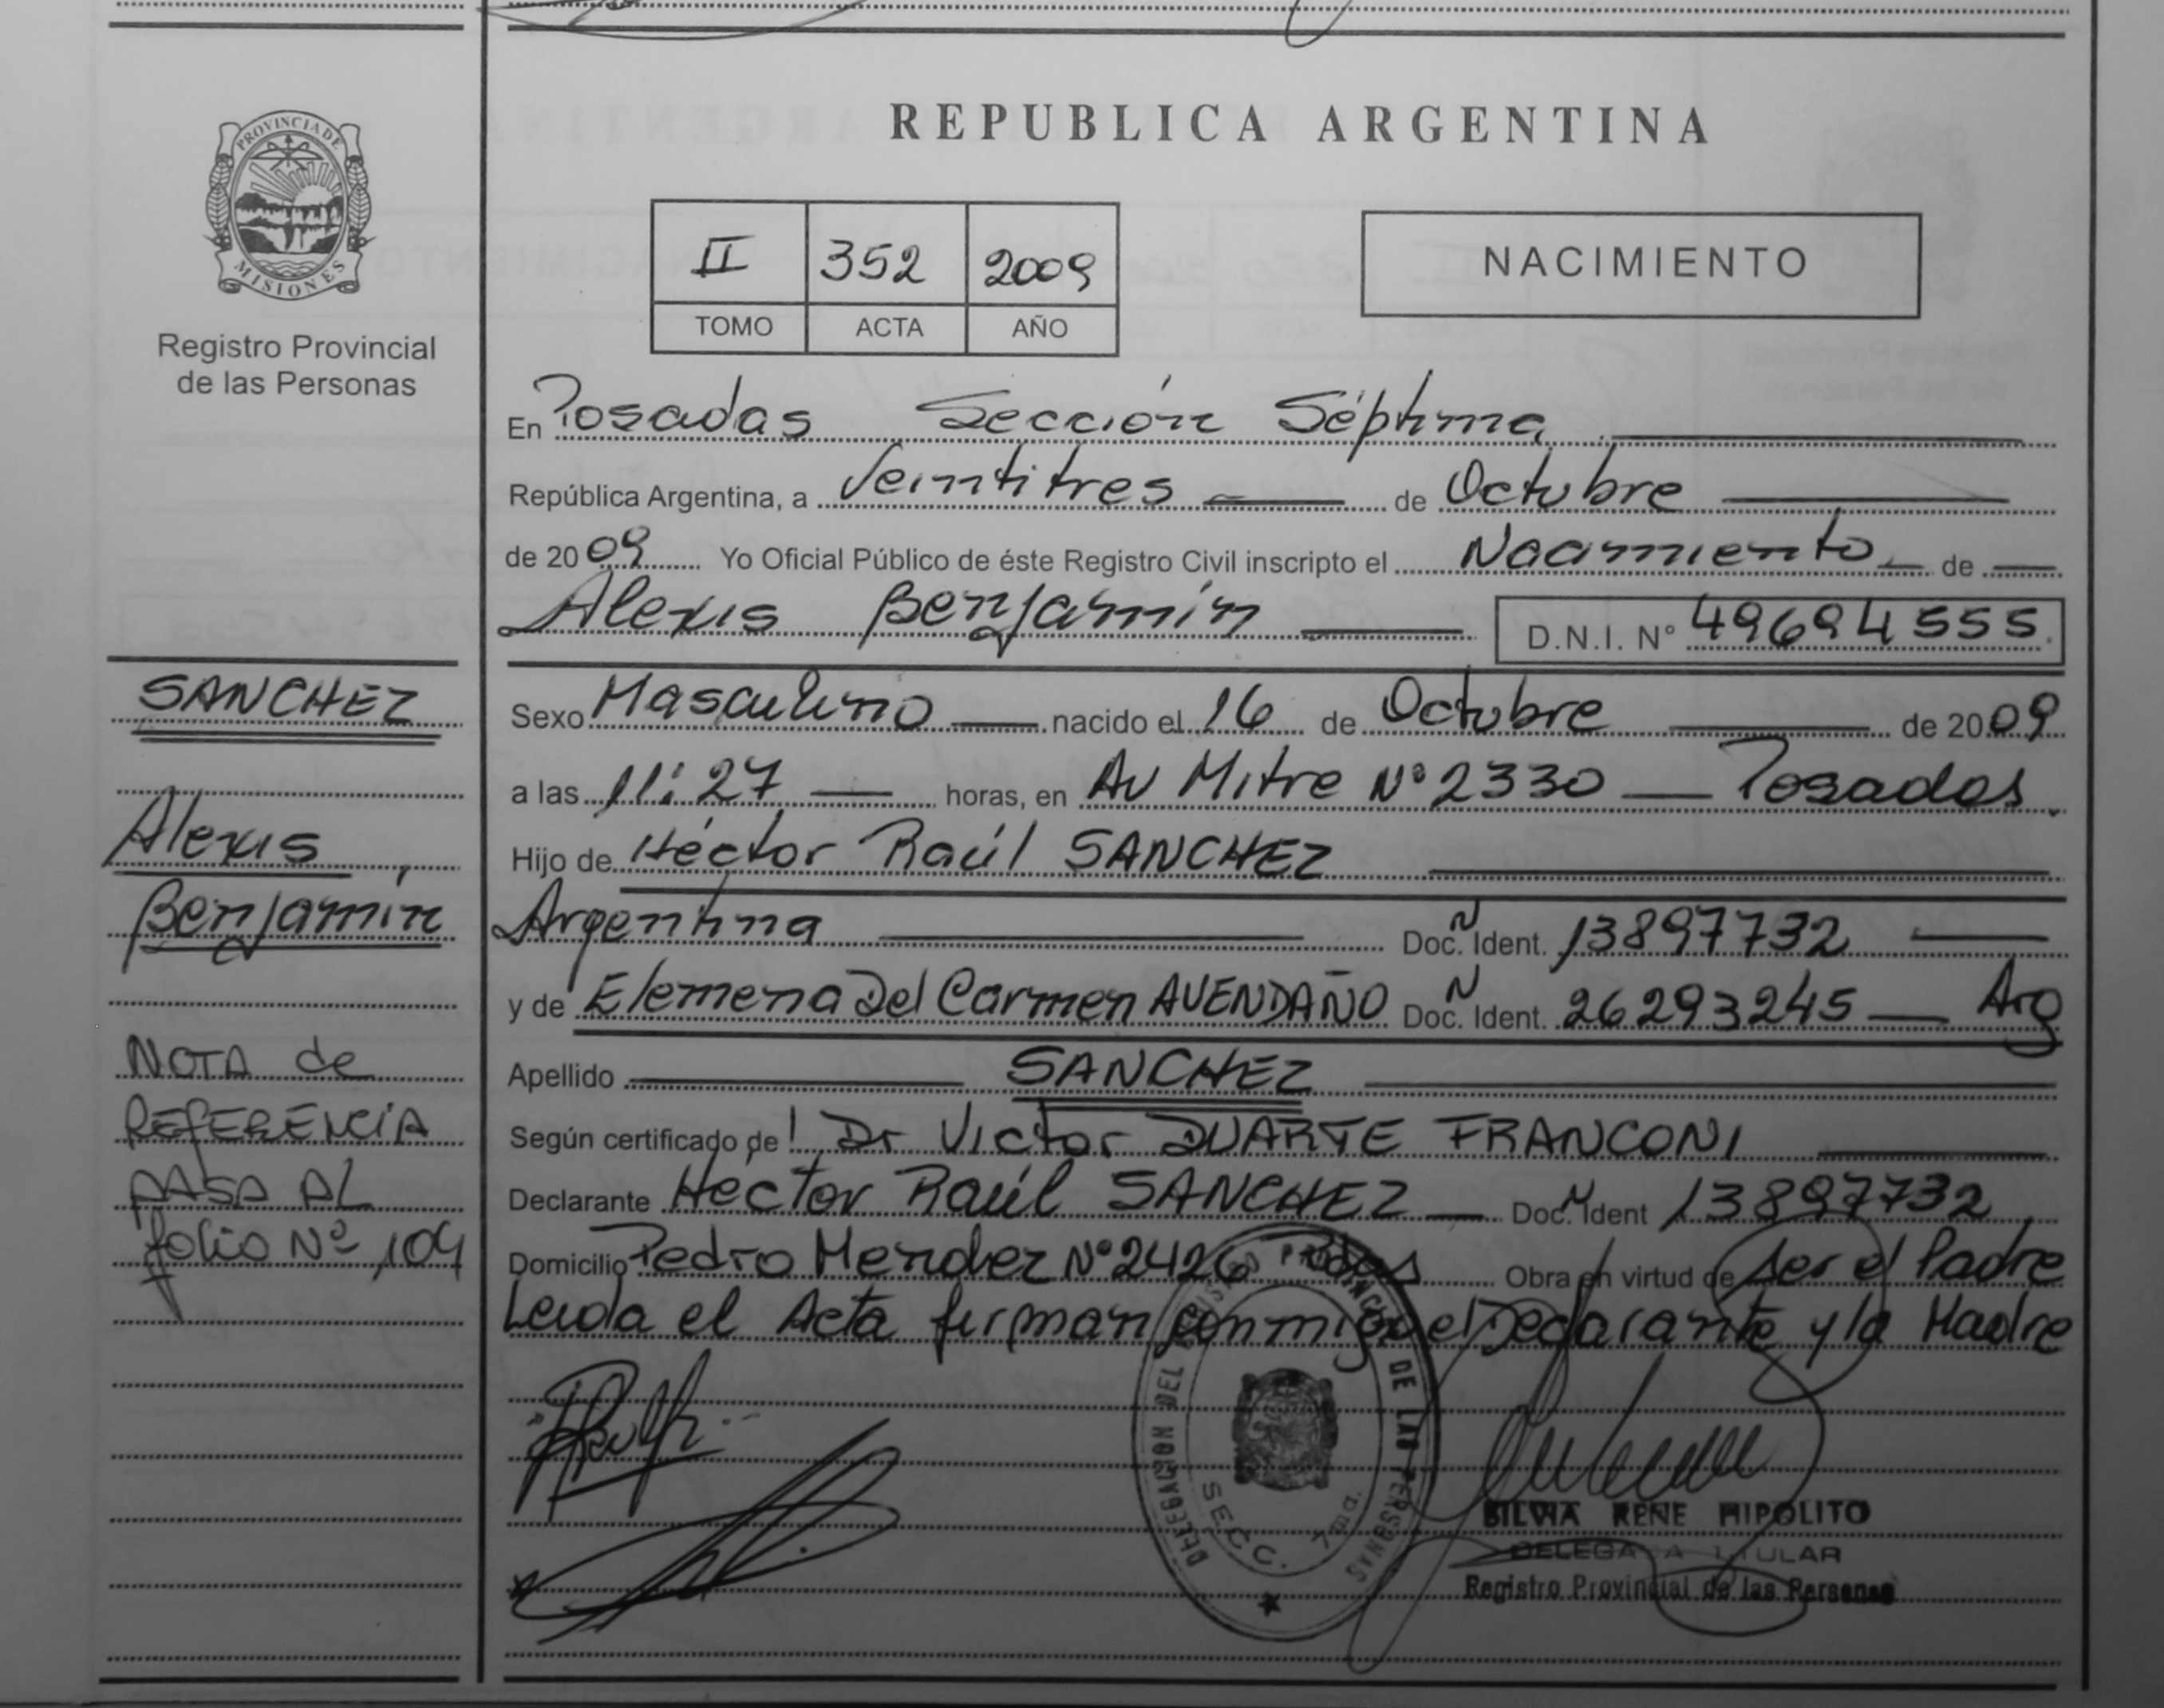 PROVINCIA DE
MISIONES
Registro Provincial
de las Personas
SANCHEZ
Alexis
Benjamín
NOTA de
REFERENCIA
PASA AL
folio Nº 104
REPUBLICA ARGENTINA
II 352 2009
TOMO ACTA AÑO
NACIMIENTO
En Posadas Sección Séptima
República Argentina, a Veintitres de Octubre
de 2009 Yo Oficial Público de éste Registro Civil inscripto el Nacimiento de
Alexis Benjamín D.N.I. Nº 49694555
Sexo Masculino nacido el 16 de Octubre de 2009
a las 11:27 horas, en Av Mitre Nº 2330 Posadas.
Hijo de Héctor Raúl SANCHEZ
Argentina Doc. N Ident. 13897732
y de Elemena Del Carmen AVENDAÑO Doc. N Ident. 26293245 Arg
Apellido SANCHEZ
Según certificado de Dr Victor DUARTE FRANCONI
Declarante Héctor Raúl SANCHEZ Doc. N Ident 13897732
Domicilio Pedro Mendez Nº 2426 Pdas Obra en virtud de ser el Padre
Leida el Acta firman conmigo el Declarante y la Madre
DELEGACION DEL REGISTRO PROVINCIAL DE LAS PERSONAS
SECC. 7ma.
SILVIA RENE HIPOLITO
DELEGADA TITULAR
Registro Provincial de las Personas